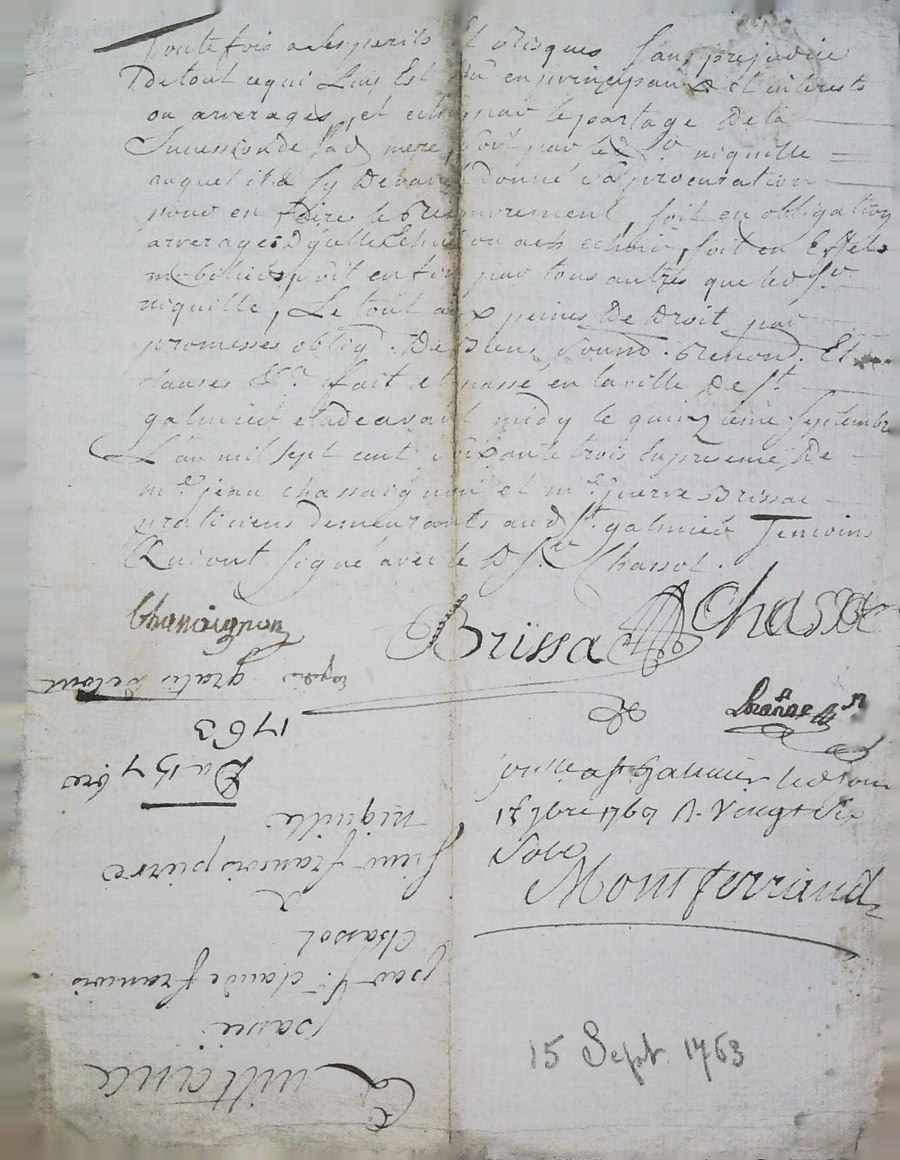 Toutefois a ses perils Et Risques Sans prejudice
De tout ce qui Luy Est dû en principaux Et interests
ou arrerages, et echû par le partage De la
Succession de Sad mere Soit par led Sr niquille
auquel il a cy Devant donné sa procuration
pour en faire le Recouvrement, soit en obligation
arrerages echeus, soit en Effets
mobiliers soit en fin par tous autres que led Sr
niquille, Le tout aux peines De Droit par
promesses oblig. De Biens Soum. Renond. Et
clauses &a. fait et passé en la ville De St.
galmier etude avant midy le quinzième Septembre
L'an mil sept cent soixante trois En presence De
me. jean chassaignon et me. pierre Brissac
praticiens demeurants aud St. galmier Temoins
Qui ont Signé avec le D Sr Chassol.
Chassaignon
Brissac
Chassol
gratis
a St Galmier le
15 7bre 1763 R. Vingt six
Sols
Montferrand
15 Sept. 1763
Quittance
passée
par Sr. claude francois
Chassol
a
Sieur francois pierre
niquille
Du 15 7bre
1763